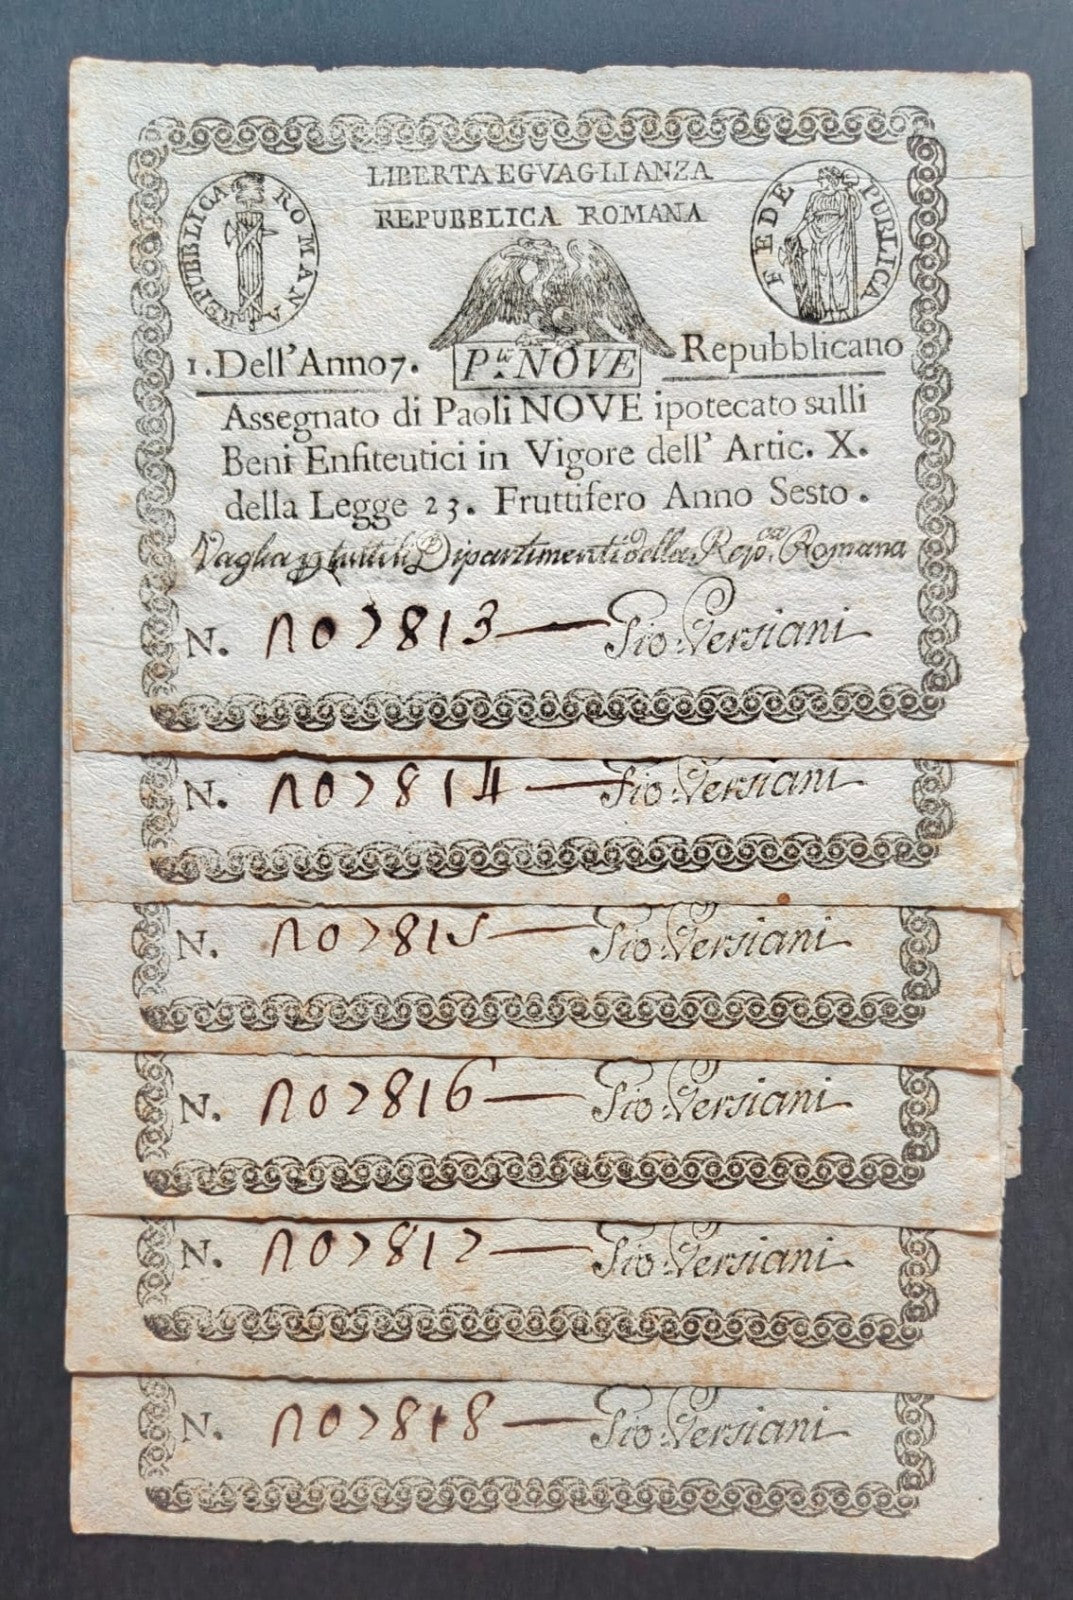 LIBERTA EGVAGLIANZA
REPUBBLICA ROMANA
REPUBBLICA ROMANA
FEDE PUBLICA
1. Dell'Anno 7. P.li NOVE Repubblicano
Assegnato di Paoli NOVE ipotecato sulli
Beni Enfiteutici in Vigore dell' Artic. X.
della Legge 23. Fruttifero Anno Sesto.
Vaglia p tutti li Dipartimenti della Repca. Romana
N. no7813 Pio Versiani
N. no7814 Pio Versiani
N. no7815 Pio Versiani
N. no7816 Pio Versiani
N. no7817 Pio Versiani
N. no7818 Pio Versiani